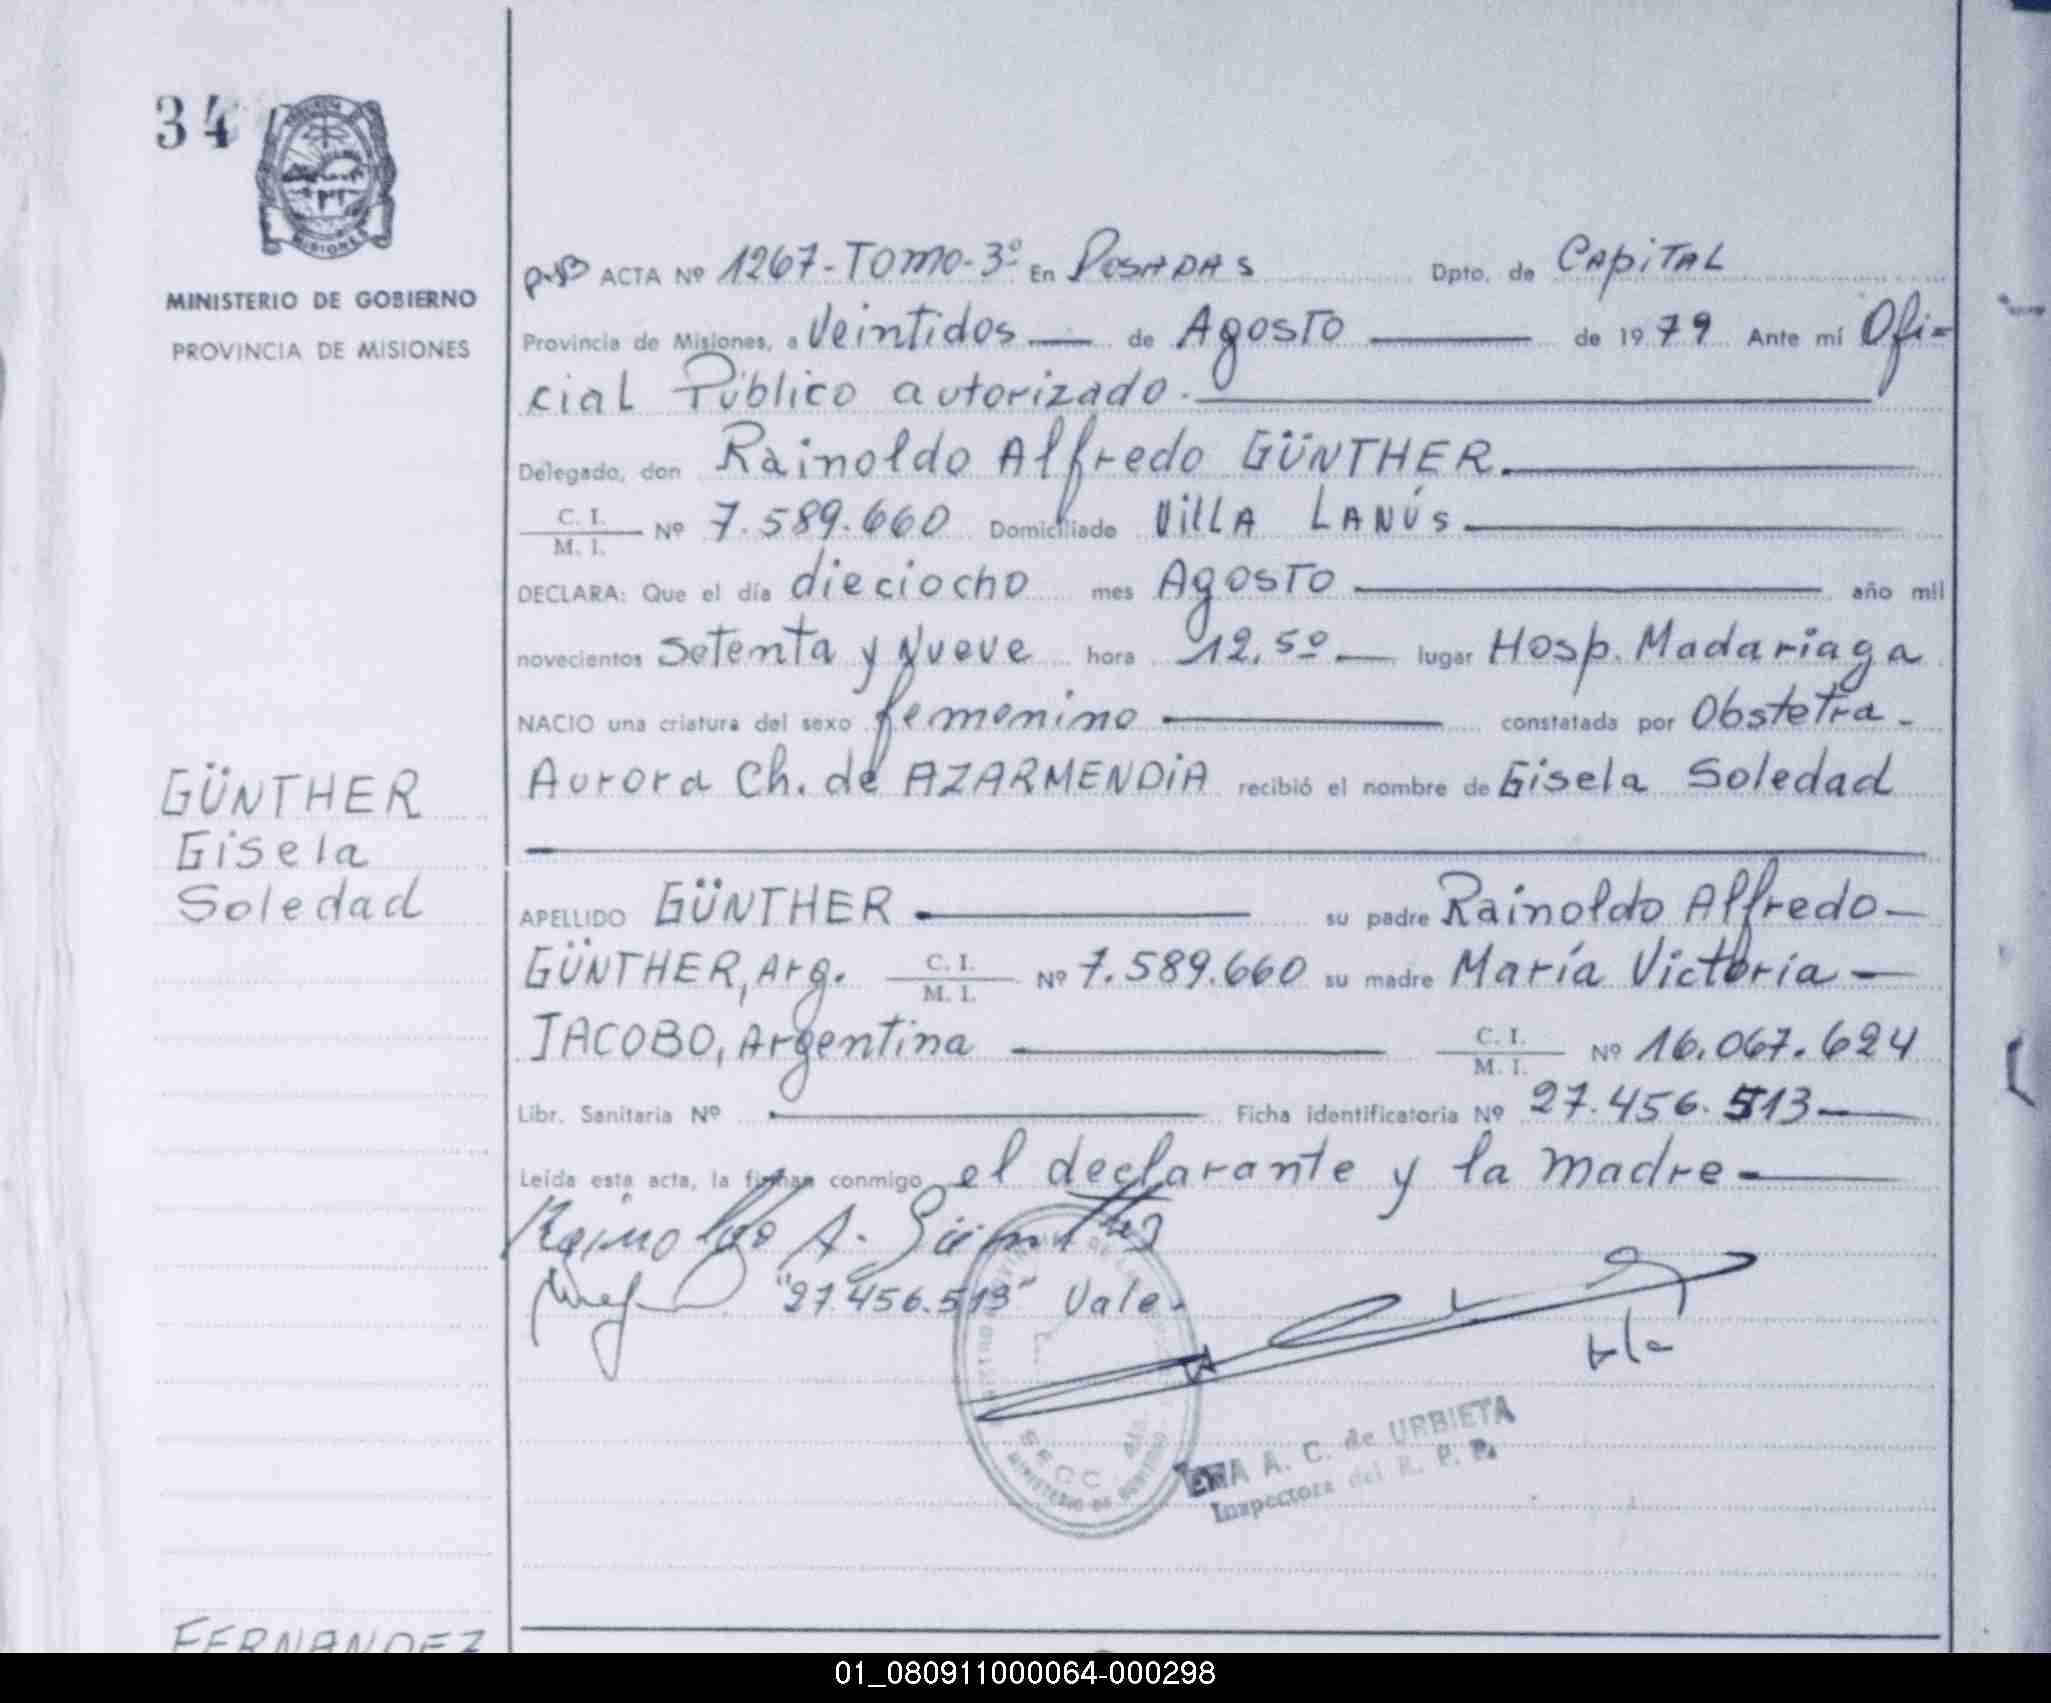 34
MISIONES
MINISTERIO DE GOBIERNO
PROVINCIA DE MISIONES
ACTA Nº 1267-TOMO-3º En POSADAS Dpto. de CAPITAL
Provincia de Misiones, a Veintidos de AgosTo de 1979 Ante mí Ofi=
cial Público autorizado.
Delegado, don Rainoldo Alfredo GÜNTHER.
C. I.
M. I. Nº 7.589.660 Domiciliado VILLA LANÚS
DECLARA: Que el día dieciocho mes AgosTo año mil
novecientos Setenta y Nueve hora 12,5º lugar Hosp. Madariaga
NACIO una criatura del sexo femenino constatada por Obstetra-
Aurora Ch. de AZARMENDIA recibió el nombre de Gisela Soledad
GÜNTHER
Gisela
Soledad
APELLIDO GÜNTHER su padre Rainoldo Alfredo-
GÜNTHER, Arg. C. I.
M. I. Nº 7.589.660 su madre María Victoria-
JACOBO, Argentina C. I.
M. I. Nº 16.067.624
Libr. Sanitaria Nº Ficha identificatoria Nº 27.456.513
Leída esta acta, la firman conmigo el declarante y la madre-
Rainoldo A. Günther
"27.456.513" Vale.
SECC
MINISTERIO DE GOBIERNO
A. C. de URBIETA
Inspectora del R. P. P.
FERNANDEZ
01_080911000064-000298